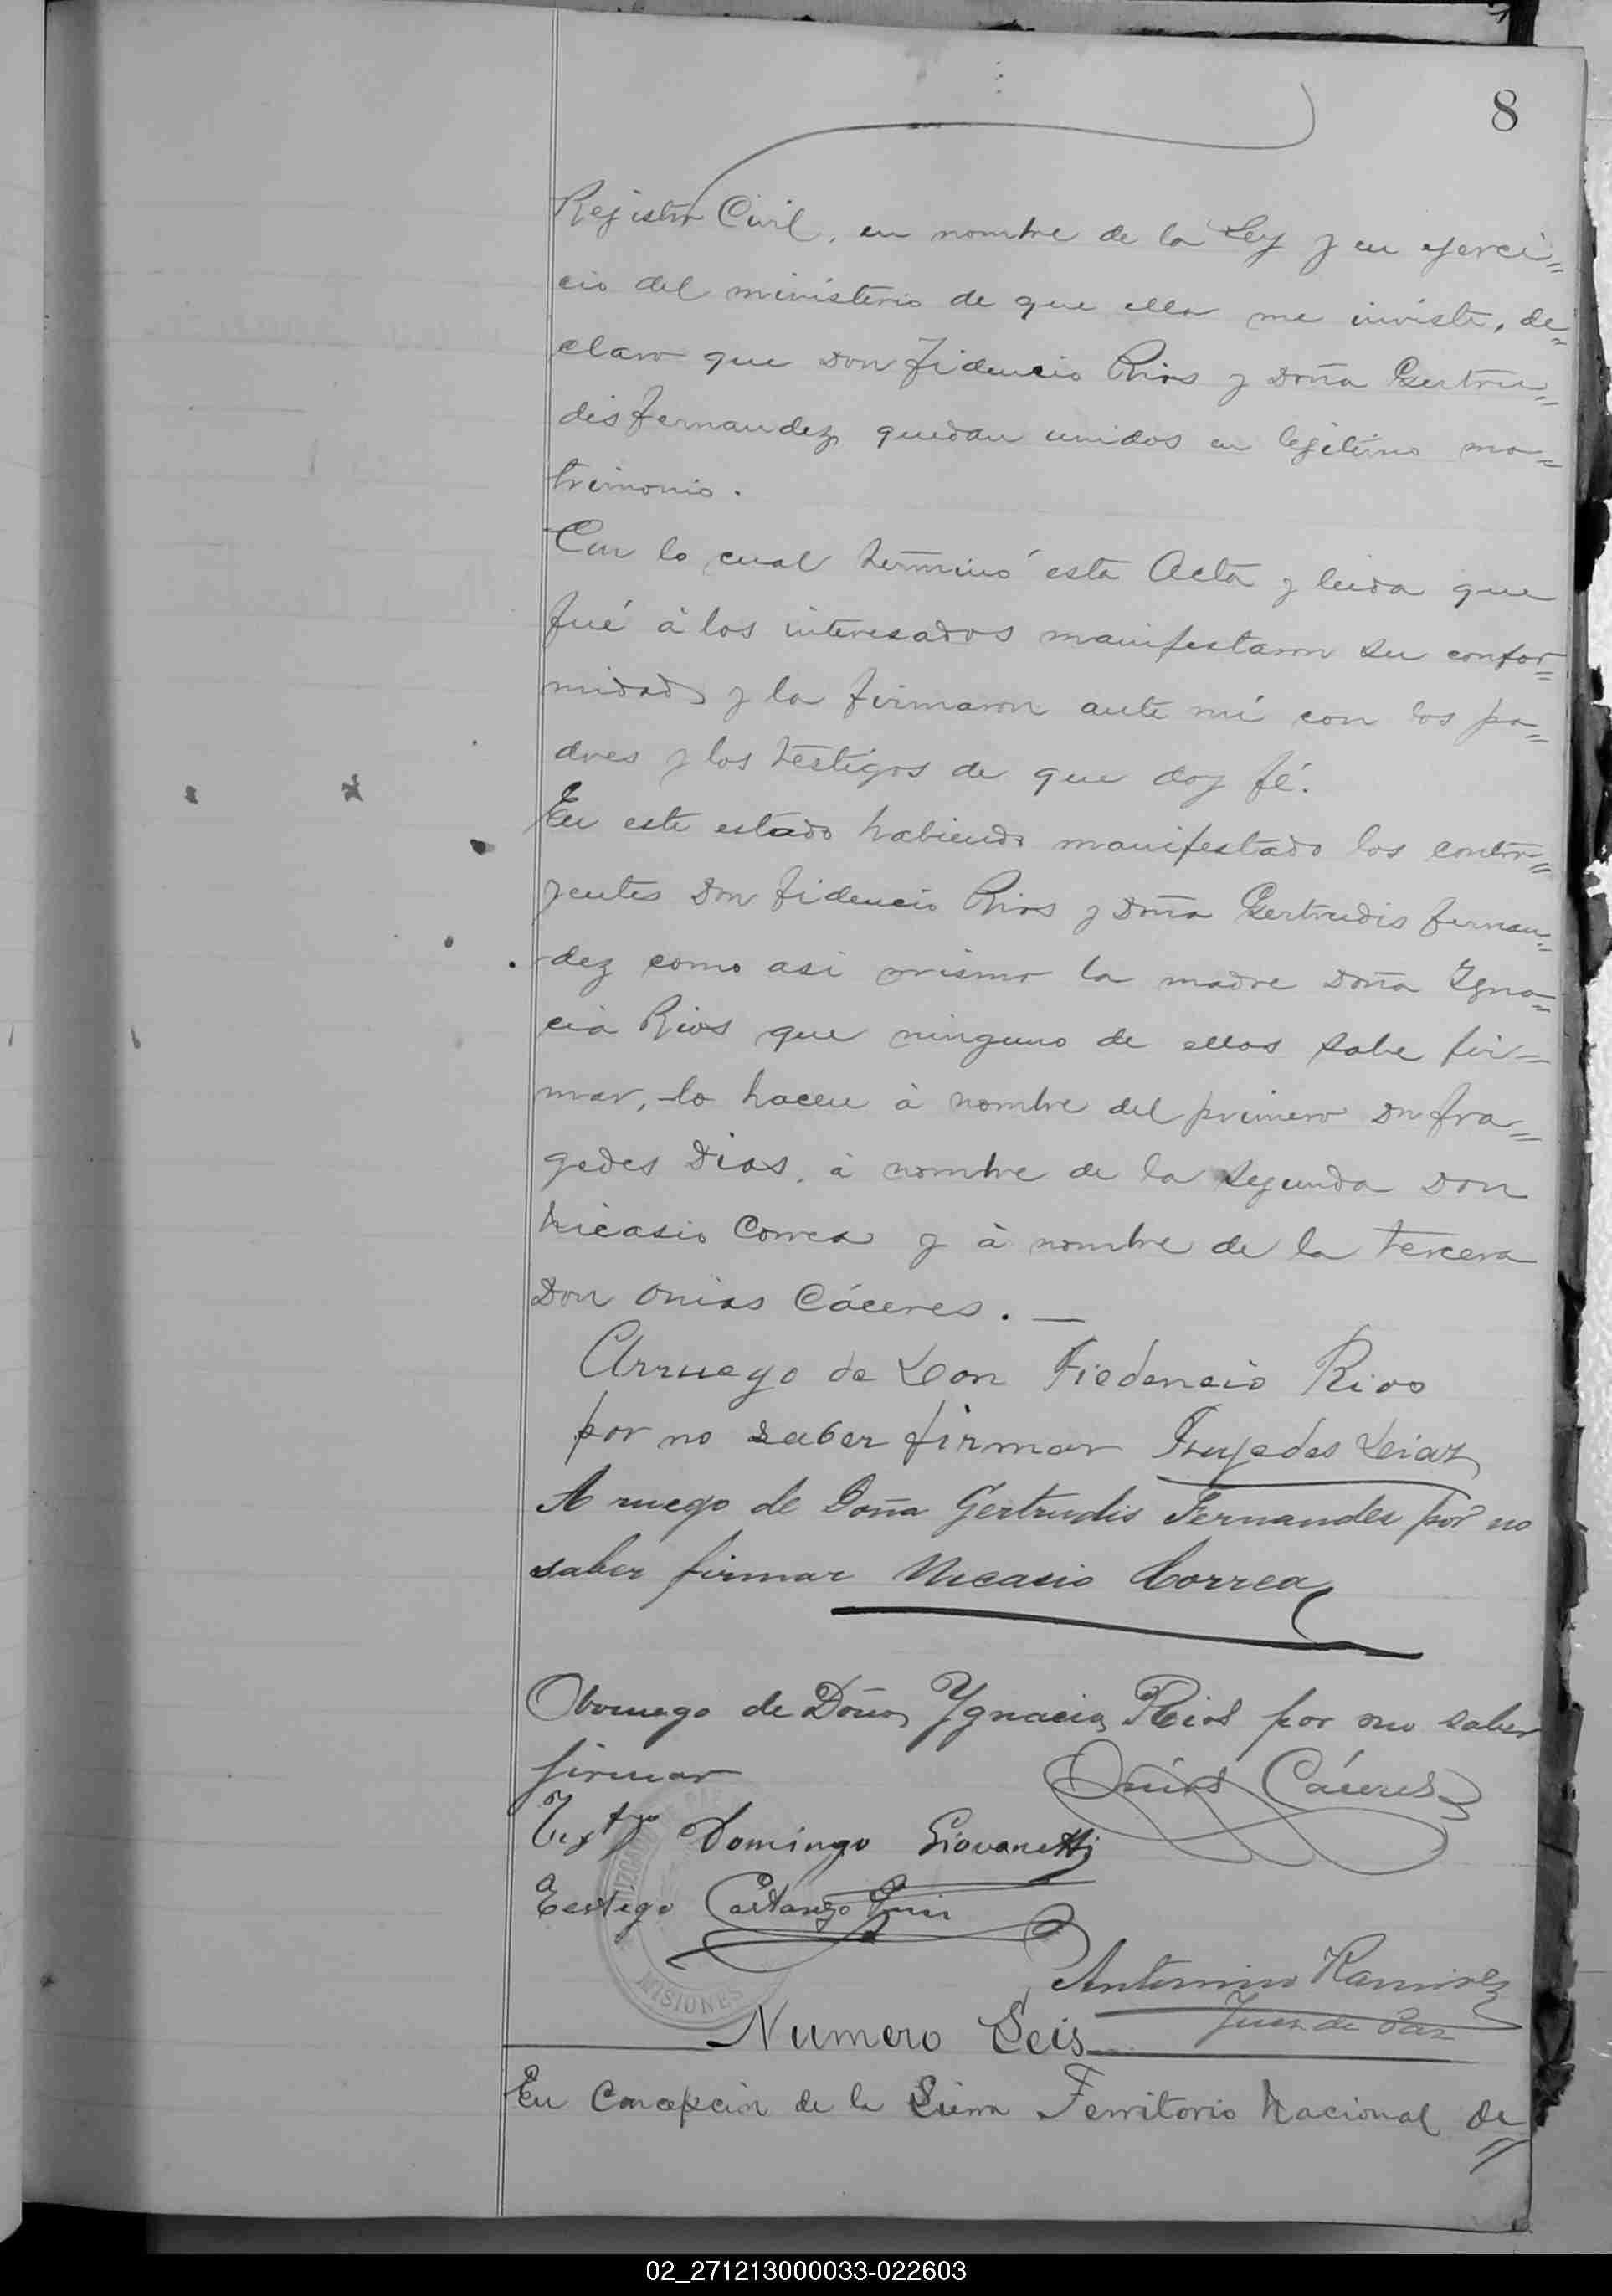 8
Registro Civil, en nombre de la Ley y en ejerci=
cio del ministerio de que ella me inviste, de=
claro que Don Fidencio Rios y Doña Gertru=
dis Fernandez quedan unidos en legitimo ma=
trimonio.
Con lo cual terminó esta Acta y leida que
fué à los interesados manifestaron su confor=
midad y la firmaron ante mi con los pa=
dres y los testigos de que doy fé.
En este estado habiendo manifestado los contra=
yentes Don Fidencio Rios y Doña Gertrudis Fernan=
dez como asi mismo la madre Doña Igna=
cia Rios que ninguno de ellos sabe fir=
mar, lo hacen à nombre del primero Dn Fra=
gedes Dias, à nombre de la segunda Don
Nicasio Correa y à nombre de la tercera
Don Onias Cáceres. —
Arruego de Don Fiedencio Rios
por no saber firmar Diaz
A ruego de Doña Gertrudis Fernandes por no
saber firmar Nicasio Correa
de Doña Ygnacia Rios por no saber
firmar Onias Cáceres
Testgo Domingo Giovanetti
Testigo
MISIONES
Antonino Ramirez
Juez de Paz
Numero Seis
En Concepción de la Sierra Territorio Nacional de=
02_271213000033-022603